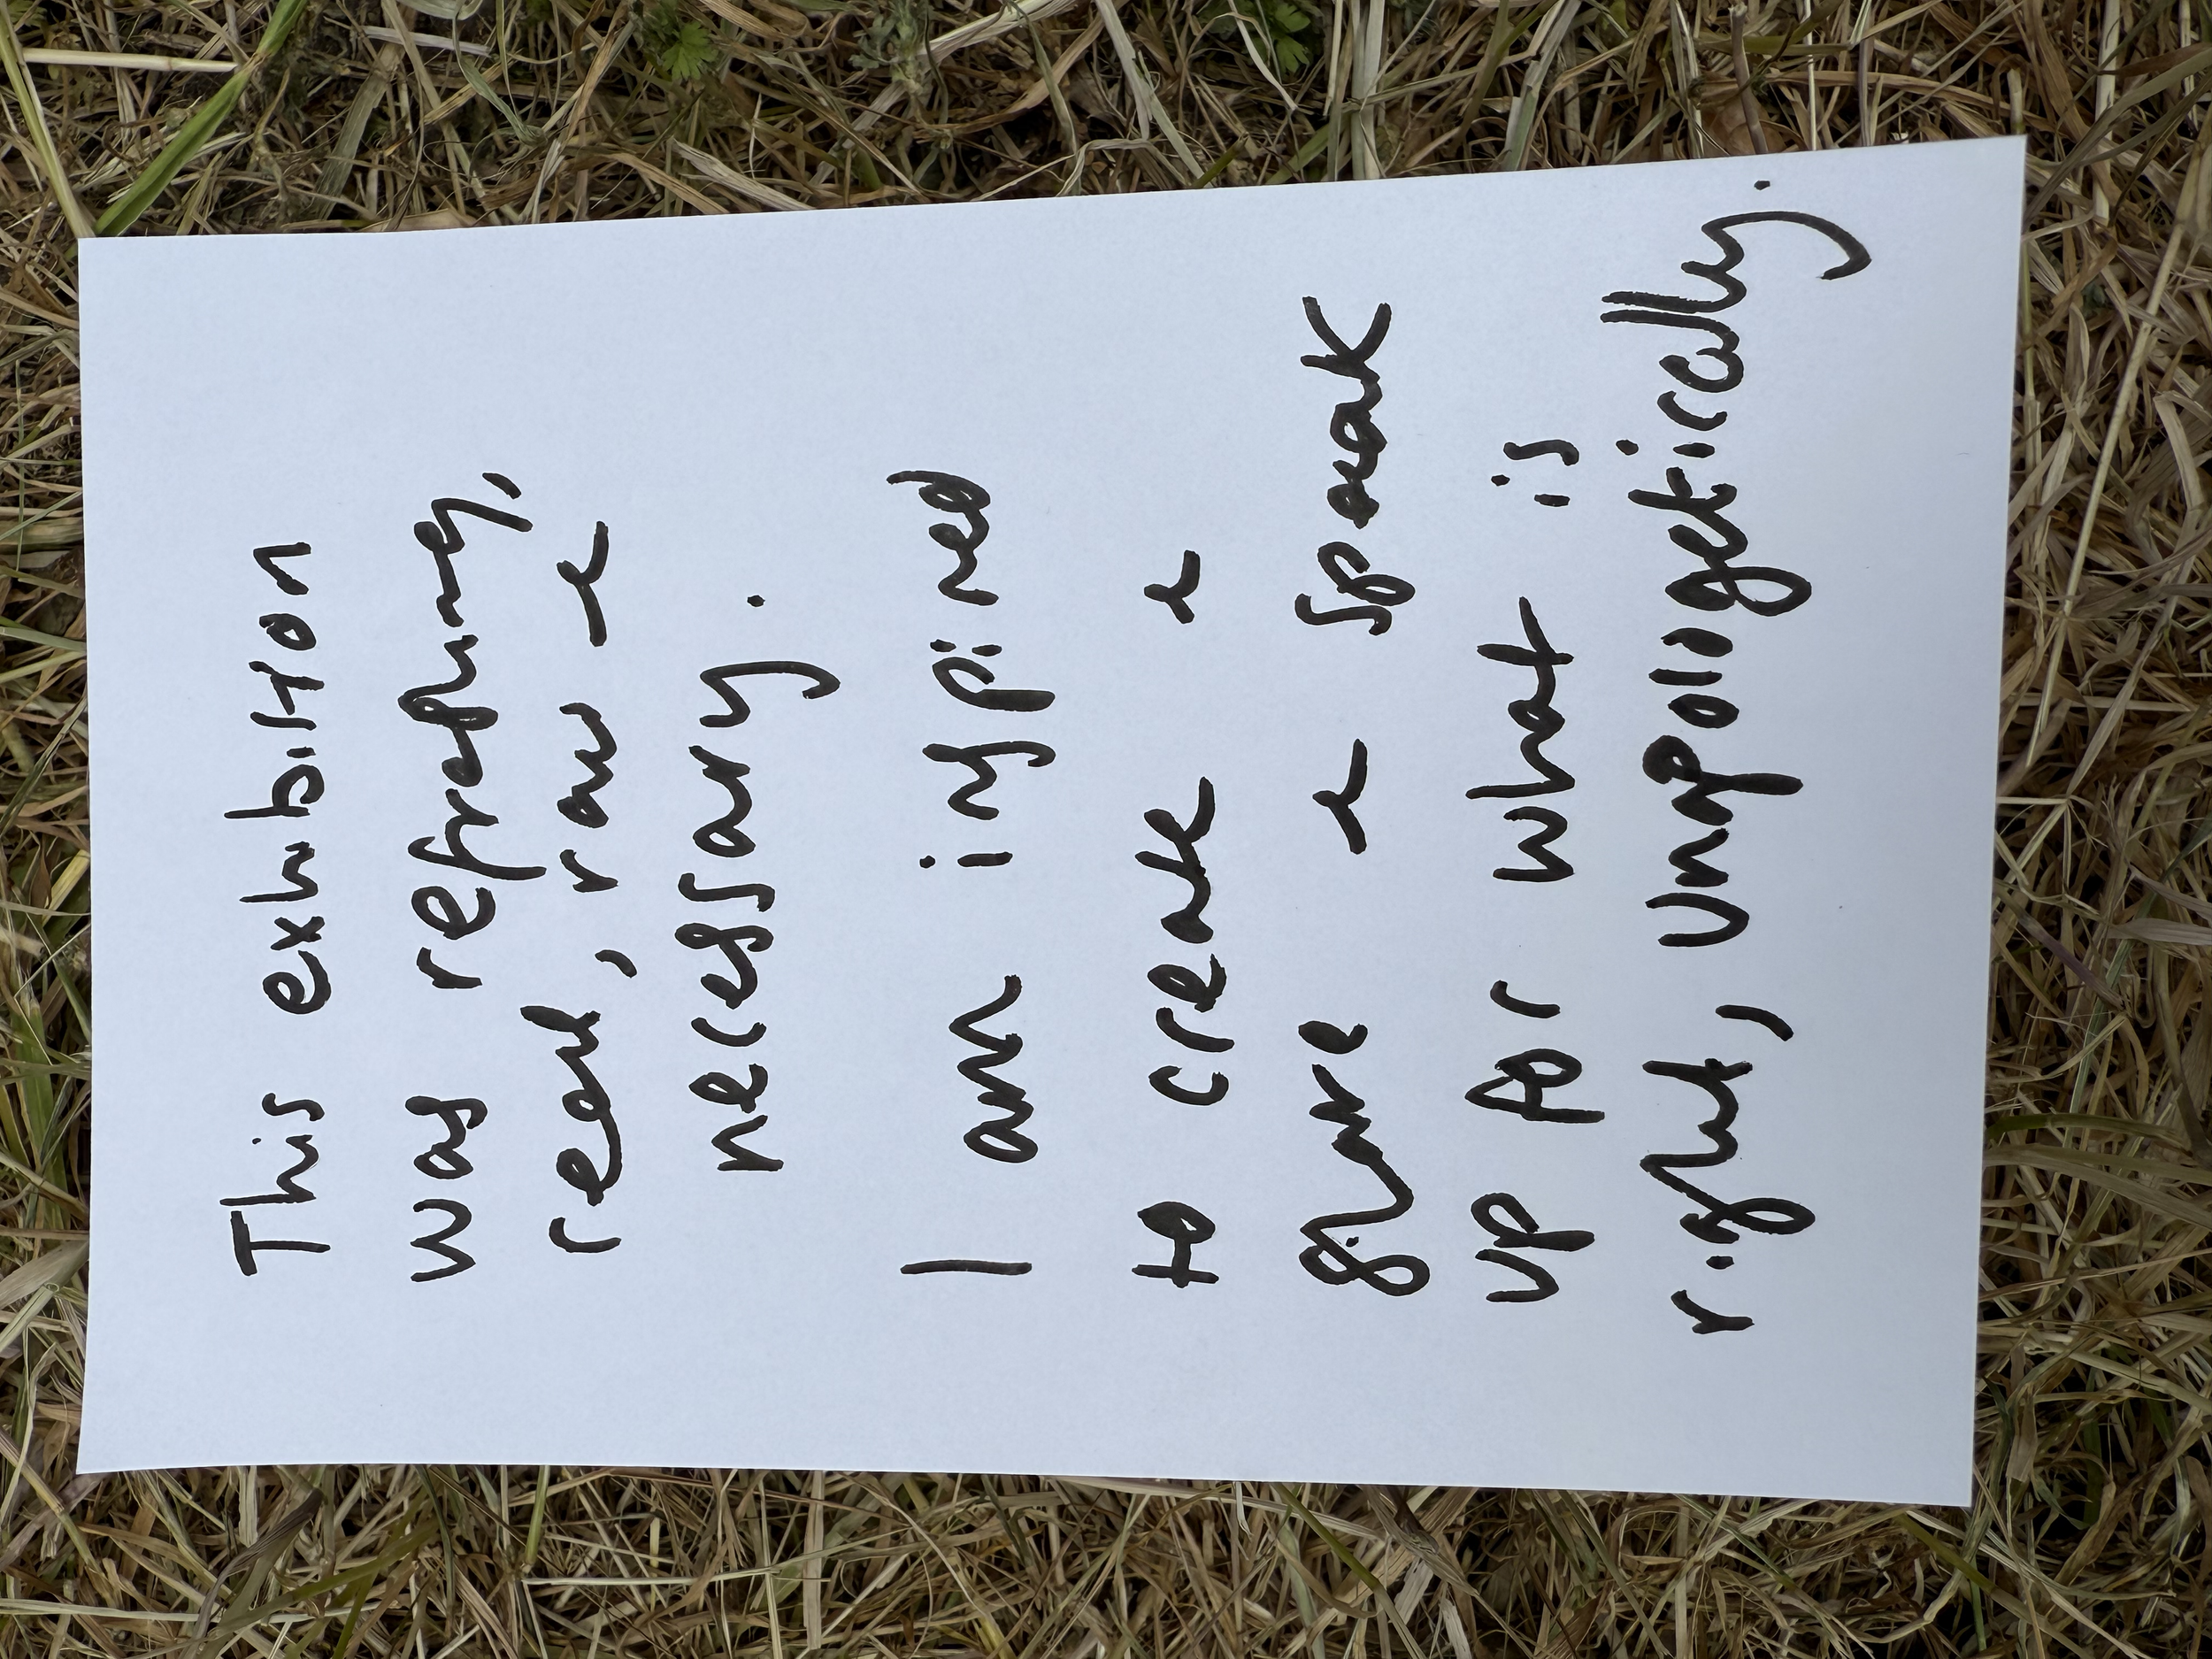 This exhibition
was refreshing,
real, raw &
necessary.
I am inspired
to create &
share & speak
up for what is
right, unapologetically.